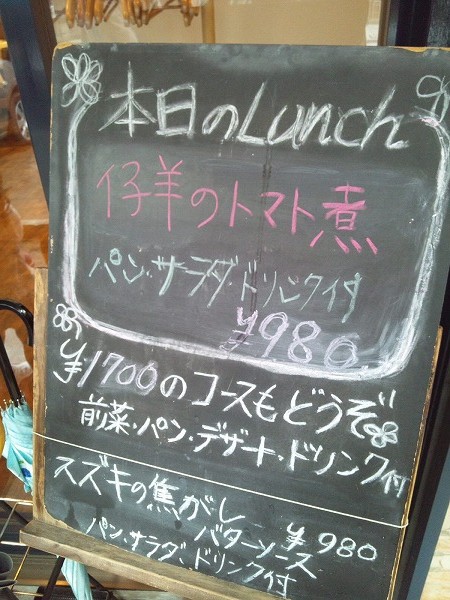 本日のLunch
仔羊のトマト煮
パン・サラダ・ドリンク付
¥980.
¥1700のコースもどうぞ
前菜・パン・デザート・ドリンク付
スズキの焦がし
バターソース ¥980
パン・サラダ、ドリンク付